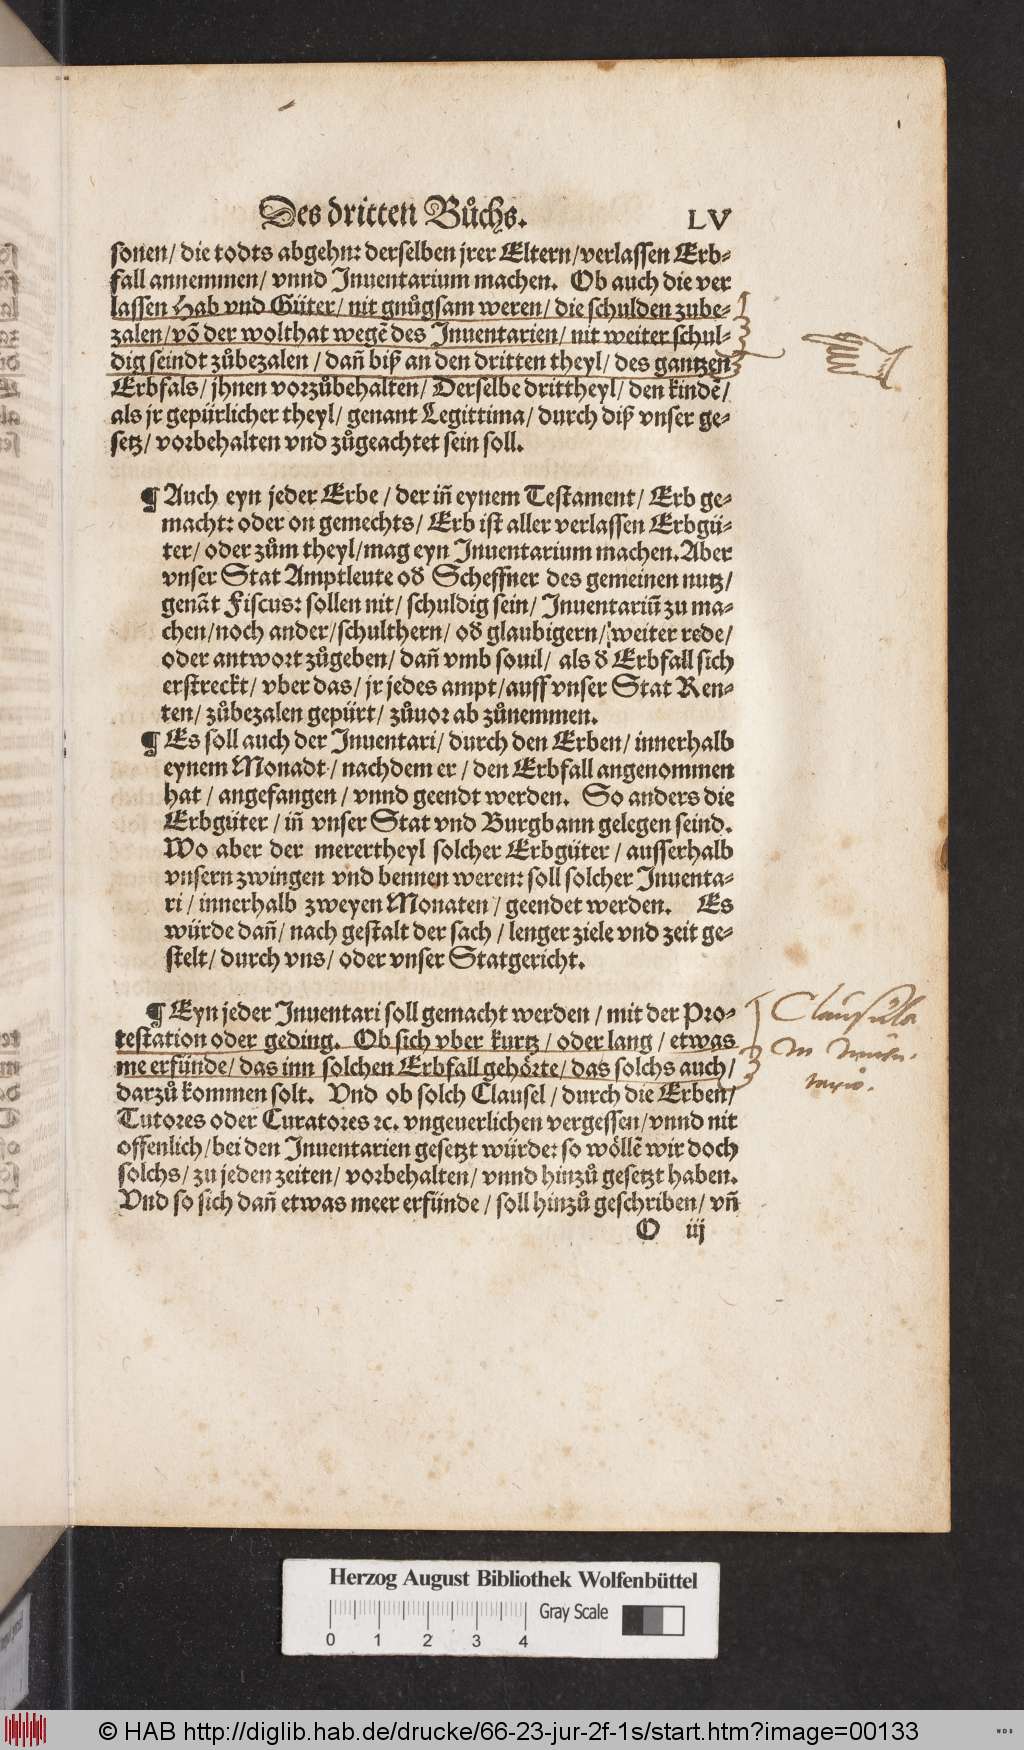 Des dritten Bůchs. LV
sonen/ die todts abgehn: derselben jrer Eltern/verlassen Erb-
fall annemmen/ vnnd Jnuentarium machen. Ob auch die ver
lassen Hab vnd Güter/ nit gnůgsam weren/ die schulden zube-
zalen/võ der wolthat wegẽ des Jnuentarien/ nit weiter schul-
dig seindt zůbezalen/ dañ biß an den dritten theyl/ des gantzen
Erbfals/ jhnen vorzůbehalten/ Derselbe drittheyl/ den kindẽ/
als jr gepürlicher theyl/ genant Legittima/ durch diß vnser ge-
setz/ vorbehalten vnd zůgeachtet sein soll.
¶ Auch eyn jeder Erbe/ der iñ eynem Testament/ Erb ge-
macht: oder on gemechts/ Erb ist aller verlassen Erbgü-
ter/ oder zům theyl/mag eyn Jnuentarium machen. Aber
vnser Stat Amptleute oď Scheffner des gemeinen nutz/
genãt Fiscus: sollen nit/ schuldig sein/ Jnuentariũ zu ma-
chen/noch ander/schulthern/ oď glaubigern/ weiter rede/
oder antwort zůgeben/ dañ vmb souil/ als ď Erbfall sich
erstreckt/ vber das/ jr jedes ampt/auff vnser Stat Ren-
ten/ zůbezalen gepürt/ zůuor ab zůnemmen.
¶ Es soll auch der Jnuentari/ durch den Erben/ innerhalb
eynem Monadt/ nachdem er/ den Erbfall angenommen
hat/ angefangen/ vnnd geendt werden. So anders die
Erbgüter/ iñ vnser Stat vnd Burgbann gelegen seind.
Wo aber der merertheyl solcher Erbgüter/ ausserhalb
vnsern zwingen vnd bennen weren: soll solcher Jnuenta-
ri/ innerhalb zweyen Monaten/ geendet werden. Es
würde dañ/ nach gestalt der sach/ lenger ziele vnd zeit ge-
stelt/ durch vns/ oder vnser Statgericht.
¶ Eyn jeder Jnuentari soll gemacht werden/ mit der Pro-
testation oder geding. Ob sich vber kurtz/ oder lang/ etwas
me erfünde/ das inn solchen Erbfall gehörte/ das solchs auch/
darzů kommen solt. Vnd ob solch Clausel/ durch die Erben/
Tutores oder Curatores ꝛc. vngeuerlichen vergessen/vnnd nit
offenlich/bei den Jnuentarien gesetzt würde: so wöllẽ wir doch
solchs/ zu jeden zeiten/ vorbehalten/ vnnd hinzů gesetzt haben.
Vnd so sich dañ etwas meer erfünde/ soll hinzů geschriben/ vñ
O iij
Clausula
in inuen-
tario.
Herzog August Bibliothek Wolfenbüttel
0 1 2 3 4 Gray Scale
© HAB http://diglib.hab.de/drucke/66-23-jur-2f-1s/start.htm?image=00133